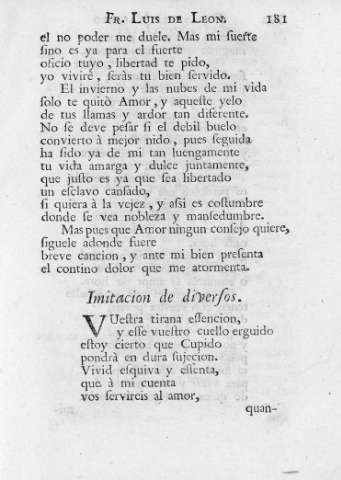 FR. LUIS DE LEON. 181
el no poder me duele. Mas mi suerte
sino es ya para el fuerte
oficio tuyo, libertad te pido,
yo viviré, seràs tu bien servido.
El invierno y las nubes de mi vida
solo te quitò Amor, y aqueste yelo
de tus llamas y ardor tan diferente.
No se deve pesar si el debil buelo
convierto à mejor nido, pues seguida
ha sido ya de mi tan luengamente
tu vida amarga y dulce juntamente,
que justo es ya que sea libertado
un esclavo cansado,
si quiera à la vejez, y assi es costumbre
donde se vea nobleza y mansedumbre.
Mas pues que Amor ningun consejo quiere,
siguele adonde fuere
breve cancion, y ante mi bien presenta
el contino dolor que me atormenta.
Imitacion de diversos.
VUestra tirana essencion,
y esse vuestro cuello erguido
estoy cierto que Cupido
pondrà en dura sujecion.
Vivid esquiva y essenta,
que à mi cuenta
vos servireis al amor,
quan-